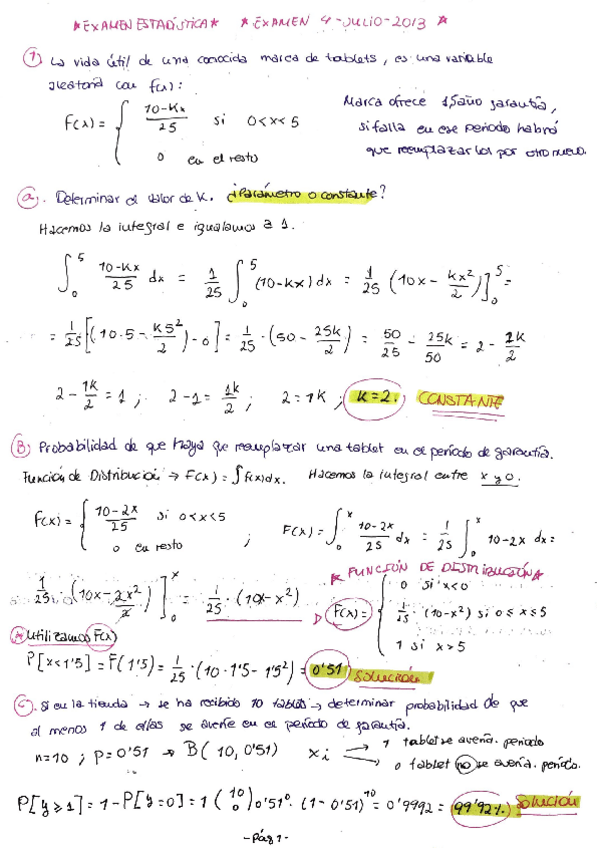 *EXAMEN ESTADÍSTICA* *EXAMEN 4-JULIO-2013*
1) La vida útil de una conocida marca de tablets, es una variable
aleatoria con f(x):
f(x) = { 10-Kx/25 si 0<x<5
0 en el resto
Marca ofrece 1,5 año garantía,
si falla en ese periodo habrá
que reemplazarlos por otro nuevo.
a). Determinar el valor de K. ¿Parámetro o constante?
Hacemos la integral e igualamos a 1.
∫₀⁵ 10-Kx/25 dx = 1/25 ∫₀⁵ (10-Kx) dx = 1/25 (10x - Kx²/2)]₀⁵ =
= 1/25 [(10·5 - K5²/2) - 0] = 1/25 · (50 - 25K/2) = 50/25 - 25K/50 = 2 - 1K/2
2 - 1K/2 = 1 ; 2-1 = 1K/2 ; 2 = 1K ; K=2. CONSTANTE
B) Probabilidad de que haya que reemplazar una tablet en el período de garantía.
Función de Distribución → F(x) = ∫f(x)dx. Hacemos la integral entre x y 0.
f(x) = { 10-2x/25 si 0<x<5
0 en resto
; F(x) = ∫₀ˣ 10-2x/25 dx = 1/25 ∫₀ˣ 10-2x dx =
* FUNCIÓN DE DISTRIBUCIÓN *
1/25 · (10x - 2x²/2)]₀ˣ = 1/25 · (10x - x²)
F(x) = { 0 si x<0
1/25 · (10-x²) si 0≤x≤5
1 si x>5
* Utilizamos F(x)
P[x<1'5] = F(1'5) = 1/25 · (10·1'5 - 1'5²) = 0'51 SOLUCIÓN
C. Si en la tienda → se ha recibido 10 tablets → determinar probabilidad de que
al menos 1 de ellas se averíe en el período de garantía.
n=10 ; P=0'51 → B(10, 0'51) xi → 1 tablet se avería. periodo
→ 0 tablet no se avería. período.
P[y≥1] = 1 - P[y=0] = 1 (10 0) 0'51⁰ · (1-0'51)¹⁰ = 0'9992 = 99'92%. SOLUCIÓN
-Pág 1-